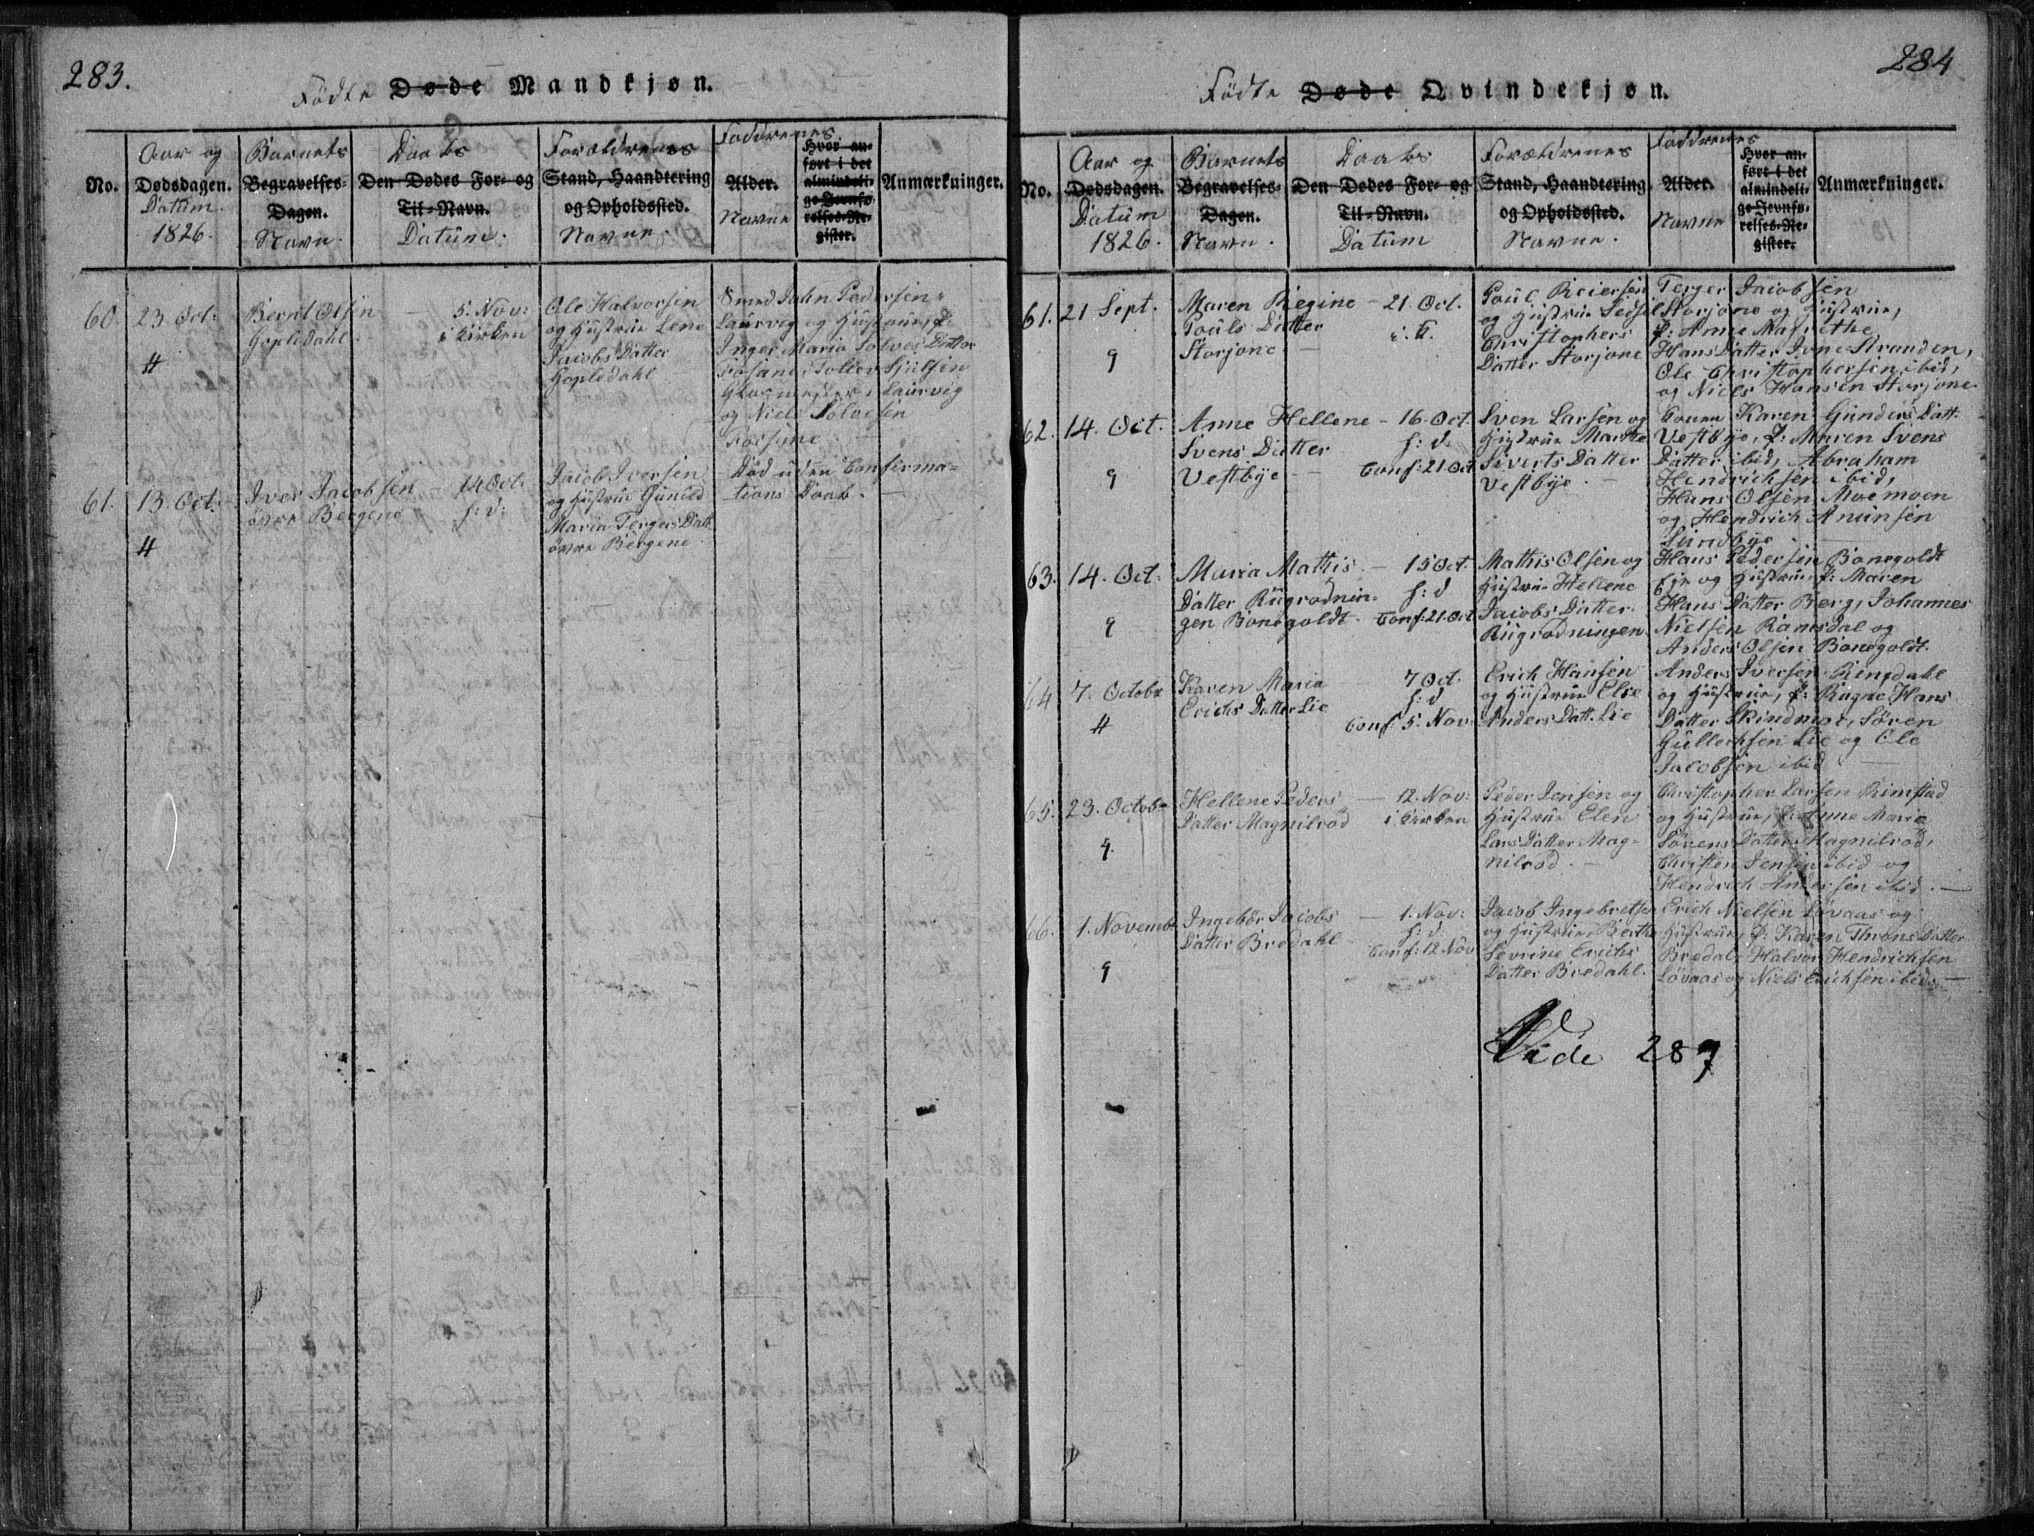 283.
Fødte Døde Mandkjøn.
No.
Aar og
Dødsdagen.
Datum
1826.
Barnets
Begravelses-
Dagen.
Navn.
Daabs
Den Dødes For- og
Til-Navn.
Datum.
Forældrenes
Stand, Haandtering
og Opholdssted.
Navne.
Faddrenes
Alder.
Navne
Hvor an-
ført i det
almindeli-
ge Jevnfø-
relses-Re-
gister.
Anmærkninger.
60.
23. Oct:
4
Bernt Olsen
Gopledahl.
5. Nov:
i Kirken
Ole Halvorsen
og Hustrue Lene
Jacobs Datter
Gopledahl
Smed John Pedersen
Laurvig og Hustrue,
Inger Maria Tolves Datter
Glasmester i Laurvig
og Niels Tolvesen
61.
13. Oct:
4
Iver Jacobsen
øvre Bergene
14 Oct:
h: d:
Jacob Iversen
og Hustrue Gunild
Maria Tergers Datt.
øvre Bergene.
Død uden Confirma-
tions Daab.
284
Fødte Døde Qvindekjøn.
No.
Aar og
Dødsdagen.
Datum
1826.
Barnets
Begravelses-
Dagen.
Navn.
Daabs
Den Dødes For- og
Til-Navn.
Datum
Forældrenes
Stand, Haandtering
og Opholdssted.
Navne.
Faddrenes
Alder.
Navne
Hvor an-
ført i det
almindeli-
ge Jevnfø-
relses-Re-
gister.
Anmærkninger.
61.
21 Sept.
9
Maren Regine
Pouls Datter
Storjone
21. Oct.
i. K.
Poul Reiersen
og Hustrue Sidsel
Christophers
Datter Storjone
Terger Jacobsen
Storjone og Hustrue,
P: Anne Magrethe
Hans Datter Ivne Stranden,
Ole Christophersen ibid,
og Niels Hansen Storjone
62.
14. Oct.
9
Anne Hellene
Svens Datter
Vestbye
16. Oct
h: d.
Conf: 21 Oct
Sven Larsen og
Hustrue Marthe
Siverts Datter
Vestbye.
Konen Karen Gunders Datt:
Vestbye, P: Maren Svens
Datter ibid, Abraham
Hendrichsen ibid,
Hans Olsen Moemoen
og Hendrich Anunsen
Sundbye
63.
14. Oct:
9
Maria Mathis
Datter Rugrødnin-
gen Bonegoldt
15 Oct.
h: d
Conf: 21. Oct
Mathis Olsen og
Hustrue Hellene
Jacobs Datter
Rugrødningen
Hans Pedersen Bonegoldt
Eie og Hustrue P: Maren
Hans Datter Berg, Johannes
Nielsen Ramsdal og
Anders Olsen Bonegoldt.
64
7. Octobr
4
Karen Maria
Erichs Datter Lie
7 Oct.
h: d
Conf 5. Nov:
Erich Hansen
og Hustrue Else
Anders Datt. Lie
Anders Iversen Ringdahl
og Hustrue, P: Ragne Hans
Datter Skindmoe, Søren
Gullechsen Lie og Ole
Jacobsen ibid
65.
23. Octobr
9.
Hellene Peders
Datter Magnilrød
12. Nov:
i Kirken
Peder Jensen og
Hustrue Elen
Lars Datter Mag-
nilrød.
Christopher Larsen Rimstad
og Hustrue, P: Anne Maria
Sørens Datter Magnilrød,
Christen Jensen ibid og
Hendrich Andersen ibid.
66.
1. Novemb.
9
Ingebor Jacobs
Datter Bredahl
1. Nov:
h: d.
Conf: 12. Nov
Jacob Ingebretsen
og Hustrue, Berthe
Sevrine Erichs
Datter Bredahl.
Erich Nielsen Løvaas og
Hustrue, P: Karen Throns Datter
Bredal, Halvor Hendrichsen
Løvaas og Niels Erichsen ibid.
Vide 287